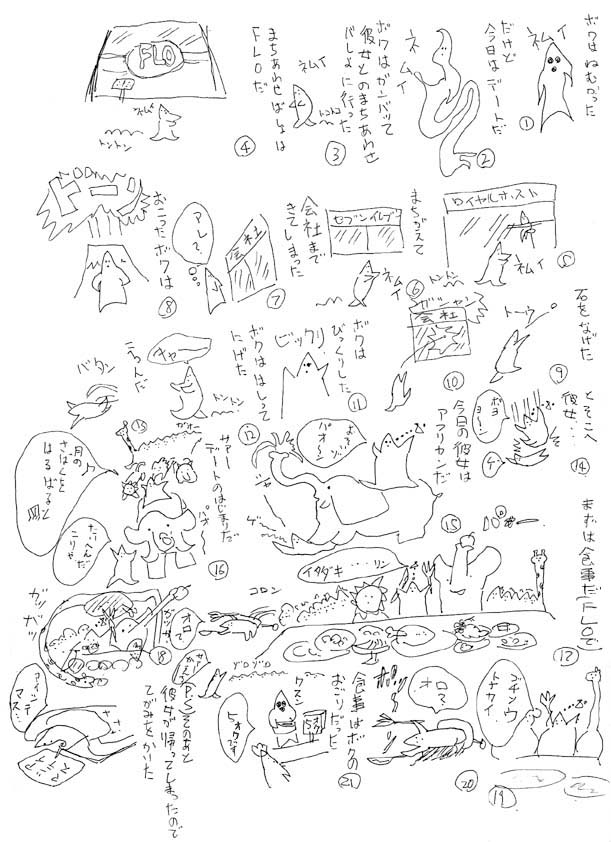 ボクはねむかった
ネムイ
①
だけど
今日はデートだ
ネムイ
②
ボクはガンバッて
彼女とのまちあわせ
ばしょに行った
ネムイ
トントン
③
まちあわせばしょは
FLOだ
FLO
ネムイ
トントン
④
ロイヤルホスト
ネムイ
トントン
⑤
まちがえて
セブンイレブン
ネムイ
⑥
会社まで
きてしまった
会社
アレ?
⑦
おこったボクは
ドーン
⑧
石をなげた
トーウ
⑨
ガシャン
会社
⑩
ボクは
びっくりした
ビックリ
⑪
ボクははしって
にげた
キャー
トントン
⑫
ころんだ
バタン
とそこへ
彼女…
ボヨヨーン
ゲ
⑭
今日の彼女は
アフリカンだ
パオ〜
⑮
サァー
デートのはじまりだ
月の
さばくを
はるばると
たいへんだ
こりゃ
パオ
⑯
まずは食事だFLOで
イタダキ・・・リン
⑰
コロン
オロ?
ガッ
ガッ
⑱
ゴチソウ
トナカイ
⑲
オロ?
⑳
食事はボクの
おごりだった
クスン
㉑
P.S そのあと
彼女が帰ってしまったので
てがみをかいた